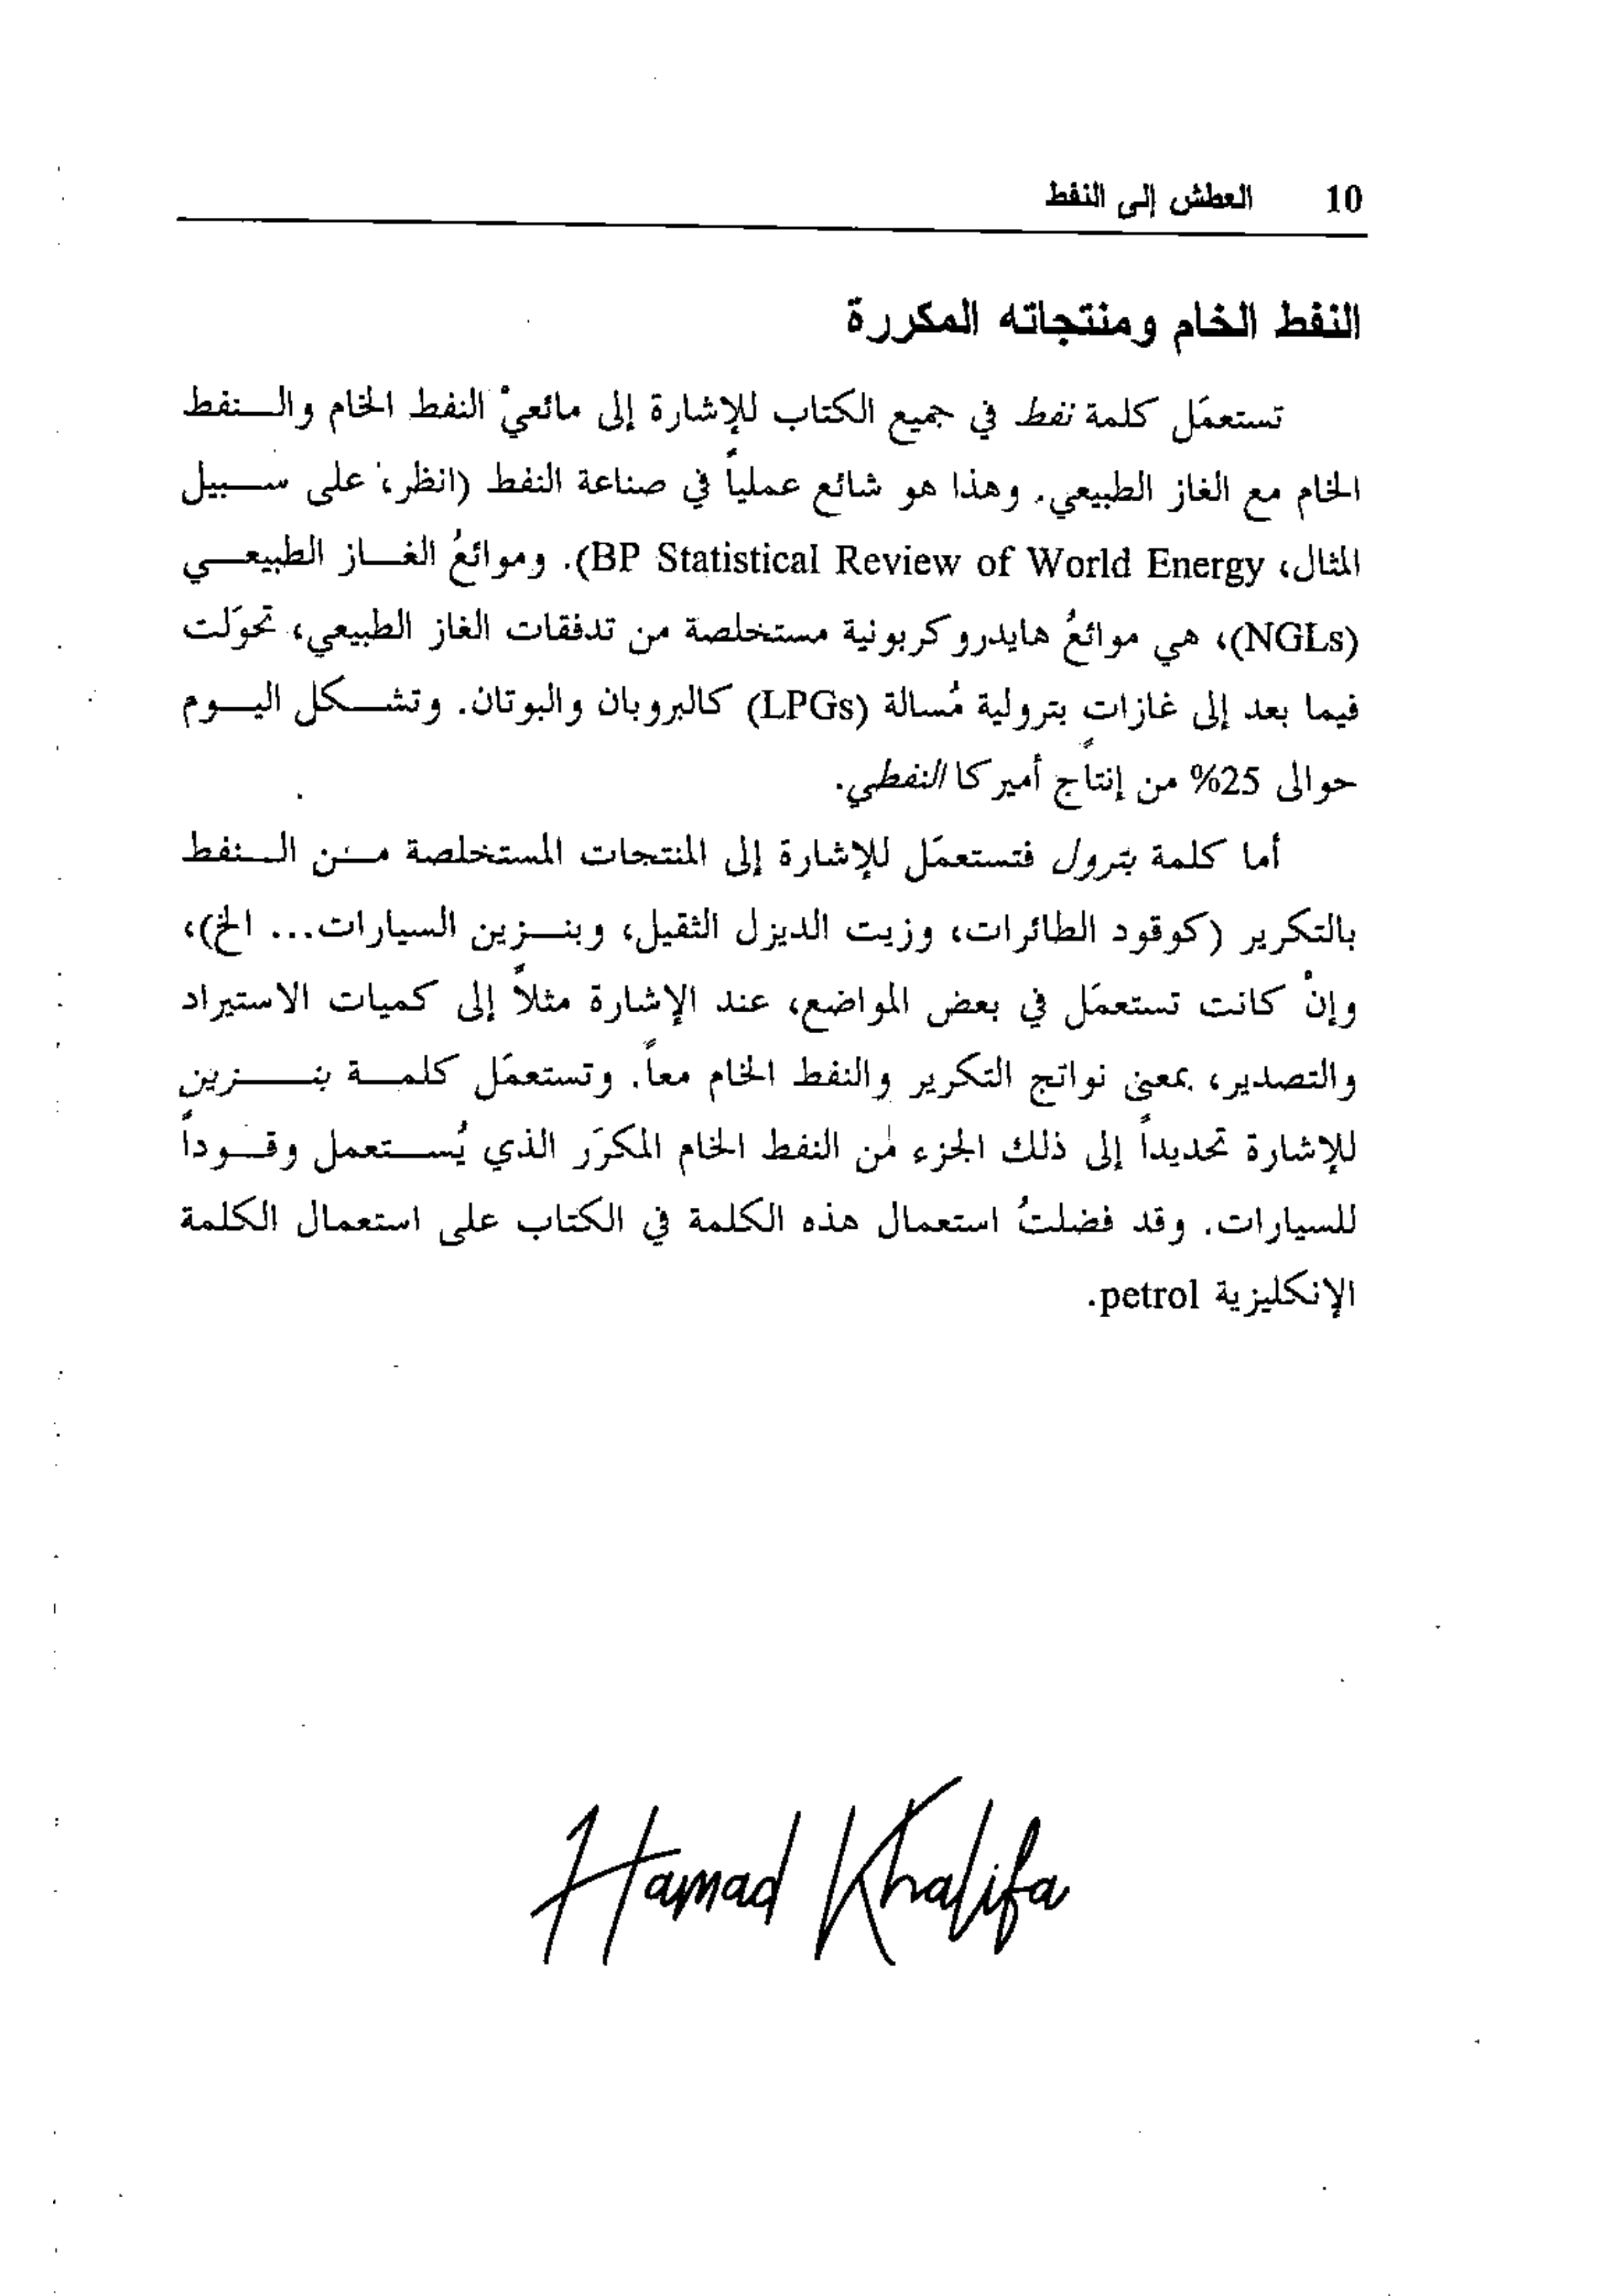 10 العطش إلى النفط
النفط الخام ومنتجاته المكررة
تستعمَل كلمة نفط في جميع الكتاب للإشارة إلى مائعيْ النفط الخام والنفط
الخام مع الغاز الطبيعي. وهذا هو شائع عملياً في صناعة النفط (انظر، على سبيل
المثال، BP Statistical Review of World Energy). وموائعُ الغاز الطبيعي
(NGLs)، هي موائعُ هايدروكربونية مستخلصة من تدفقات الغاز الطبيعي، تحوّلت
فيما بعد إلى غازات بترولية مُسالة (LPGs) كالبروبان والبوتان. وتشكل اليوم
حوالى 25% من إنتاج أميركا النفطي.
أما كلمة بترول فتستعمَل للإشارة إلى المنتجات المستخلصة من النفط
بالتكرير (كوقود الطائرات، وزيت الديزل الثقيل، وبنزين السيارات... الخ)،
وإنْ كانت تستعمَل في بعض المواضع، عند الإشارة مثلاً إلى كميات الاستيراد
والتصدير، بمعنى نواتج التكرير والنفط الخام معاً. وتستعمَل كلمة بنزين
للإشارة تحديداً إلى ذلك الجزء من النفط الخام المكرَر الذي يُستعمل وقوداً
للسيارات. وقد فضلتُ استعمال هذه الكلمة في الكتاب على استعمال الكلمة
الإنكليزية petrol.
Hamad Khalifa